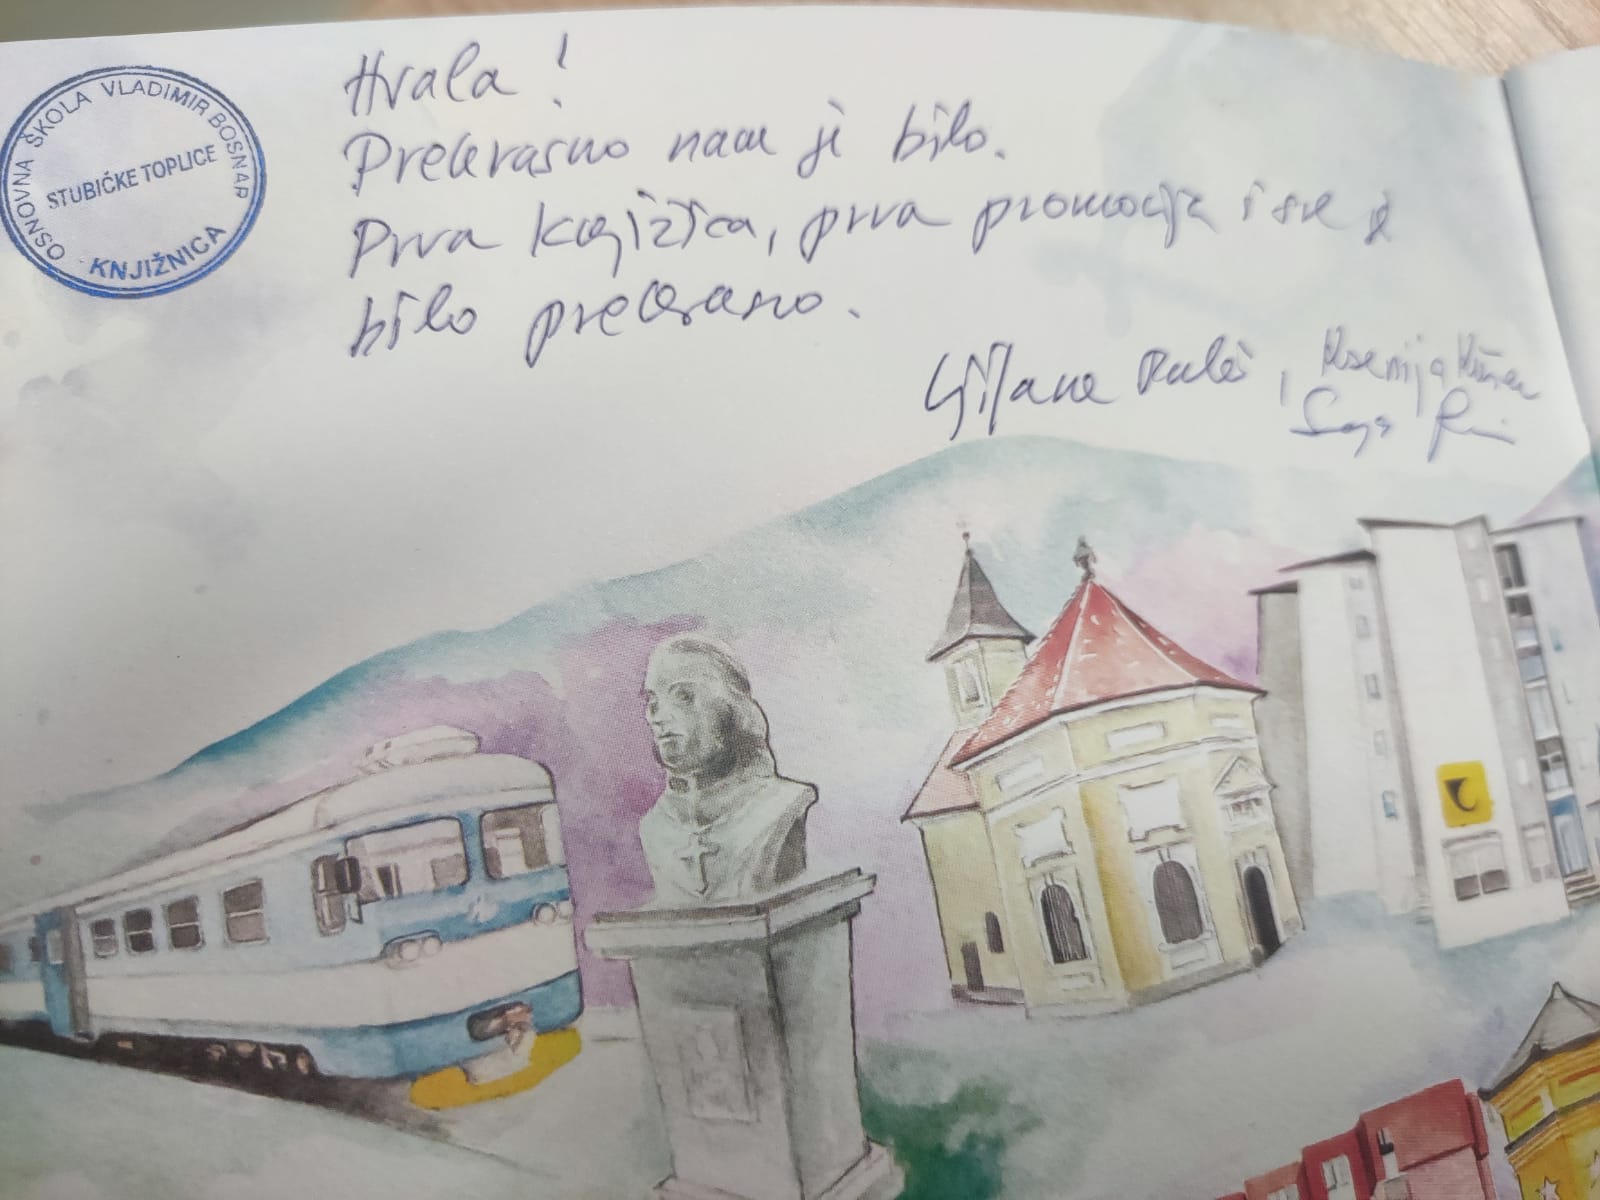 OSNOVNA ŠKOLA VLADIMIR BOSNAR
STUBIČKE TOPLICE
KNJIŽNICA
Hvala!
Prekrasno nam je bilo.
Prva knjižica, prva promocija i sve je
bilo prekrasno.
Ljiljana, Ksenija